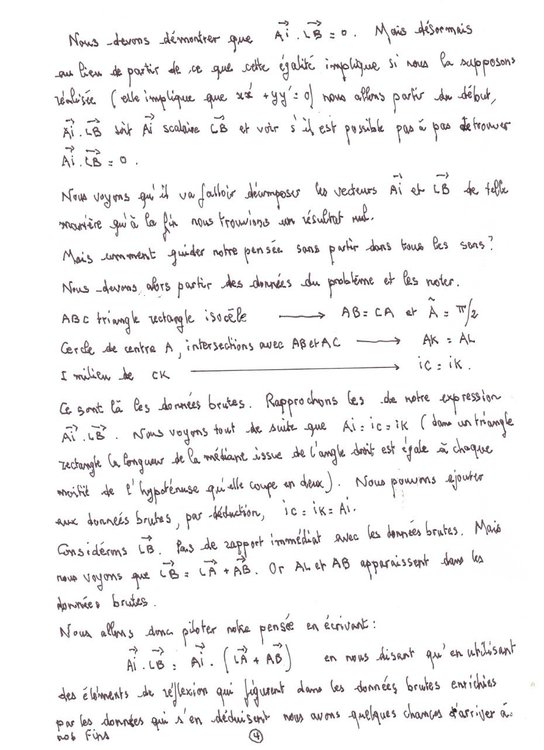 Nous devons démontrer que Ai⃗ . LB⃗ = 0. Mais désormais
au lieu de partir de ce que cette égalité implique si nous la supposons
réalisée (elle implique que xx' + yy' = 0) nous allons partir du début,
Ai⃗ . LB⃗ soit Ai⃗ scalaire LB⃗ et voir s'il est possible pas à pas de trouver
Ai⃗ . LB⃗ = 0.
Nous voyons qu'il va falloir décomposer les vecteurs Ai⃗ et LB⃗ de telle
manière qu'à la fin nous trouvions un résultat nul.
Mais comment guider notre pensée sans partir dans tous les sens ?
Nous devons alors partir des données du problème et les noter.
ABC triangle rectangle isocèle → AB = CA et Ã = π/2
Cercle de centre A, intersections avec AB et AC → AK = AL
I milieu de CK → iC = iK.
Ce sont là les données brutes. Rapprochons les de notre expression
Ai⃗ . LB⃗. Nous voyons tout de suite que Ai = iC = iK (dans un triangle
rectangle la longueur de la médiane issue de l'angle droit est égale à chaque
moitié de l'hypoténuse qu'elle coupe en deux). Nous pouvons ajouter
aux données brutes, par déduction, iC = iK = Ai.
Considérons LB⃗. Pas de rapport immédiat avec les données brutes. Mais
nous voyons que LB⃗ = LA⃗ + AB⃗. Or AL et AB apparaissent dans les
données brutes.
Nous allons donc piloter notre pensée en écrivant :
Ai⃗ . LB⃗ = Ai⃗ . (LA⃗ + AB⃗) en nous disant qu'en utilisant
des éléments de réflexion qui figurent dans les données brutes enrichies
par les données qui s'en déduisent nous avons quelques chances d'arriver à
nos fins
4